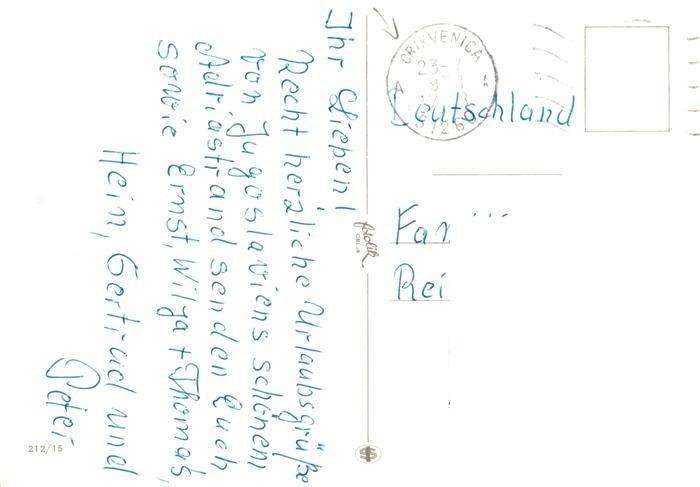 Ihr Lieben!
Recht herzliche Urlaubsgrüße
von Jugoslaviens schönem
Adriastrand senden Euch
sowie Ernst, Wilga + Thomas,
Hein, Gertrud und
Peter
212/15
fotolik
CELJE
CRIKVENICA
23
A
51260
Deutschland
Fam ...
Rei